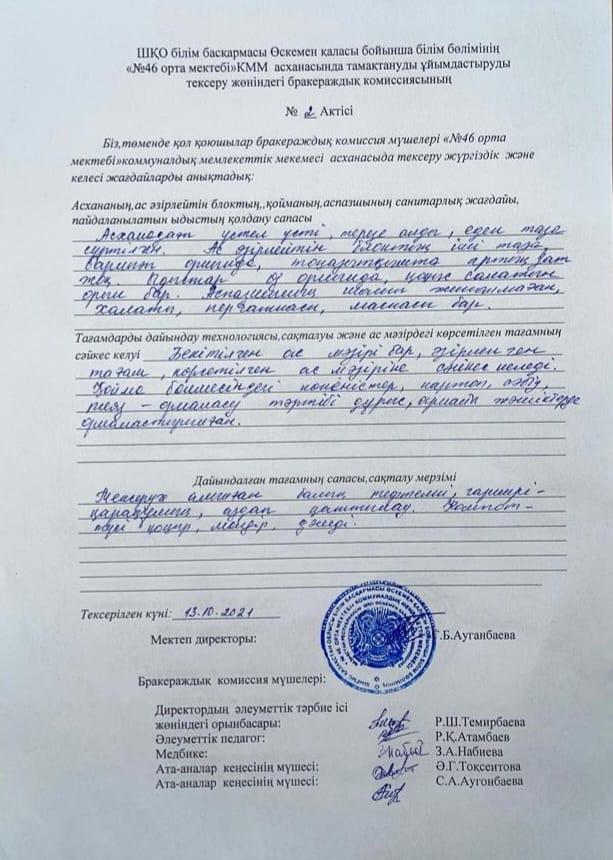 ШҚО білім басқармасы Өскемен қаласы бойынша білім бөлімінің
«№46 орта мектебі»КММ асханасында тамақтануды ұйымдастыруды
тексеру жөніндегі бракераждық комиссиясының
№ 2 Актісі
Біз,төменде қол қоюшылар бракераждық комиссия мүшелері «№46 орта
мектебі»коммуналдық мемлекеттік мекемесі асханасыда тексеру жүргіздік және
келесі жағдайларды анықтадық:
Асхананың,ас әзірлейтін блоктың,,қойманың,аспазшының санитарлық жағдайы,
пайдаланылатын ыдыстың қолдану сапасы
Асханадағы үстел үсті, терезе алды, еден таза
сүртілген. Ас әзірлейтін блоктың іші таза,
бәрі орнында, тоңазытқышта артық зат
жоқ. Заттар өз орнында, қоқыс салатын
орны бар. Аспазшының
халаты, перчаткасы, маскасы бар.
Тағамдарды дайындау технологиясы,сақталуы және ас мәзірдегі көрсетілген тағамның
сәйкес келуі Бекітілген ас мәзірі бар, әзірленген
тағам, көрсетілген ас мәзіріне сәйкес келеді.
Қойма бөлмесіндегі көкөністер, картоп, сәбіз,
пияз - орналасу тәртібі дұрыс, арнайы жәшіктерде
орналастырылған.
Дайындалған тағамның сапасы,сақталу мерзімі
Тексеруге алынған балық тефтелиі, гарнирі-
қарақұмық, аздап қаттылау. Компот-
түсі қоңыр, мөлдір, дәмді.
Тексерілген күні: 13.10.2021
Мектеп директоры: Г.Б.Ауганбаева
Бракераждық комиссия мүшелері:
Директордың әлеуметтік тәрбие ісі
жөніндегі орынбасары: Р.Ш.Темирбаева
Әлеуметтік педагог: Р.Қ.Атамбаев
Медбике: З.А.Набиева
Ата-аналар кеңесінің мүшесі: Ә.Г.Токсеитова
Ата-аналар кеңесінің мүшесі: С.А.Аугонбаева